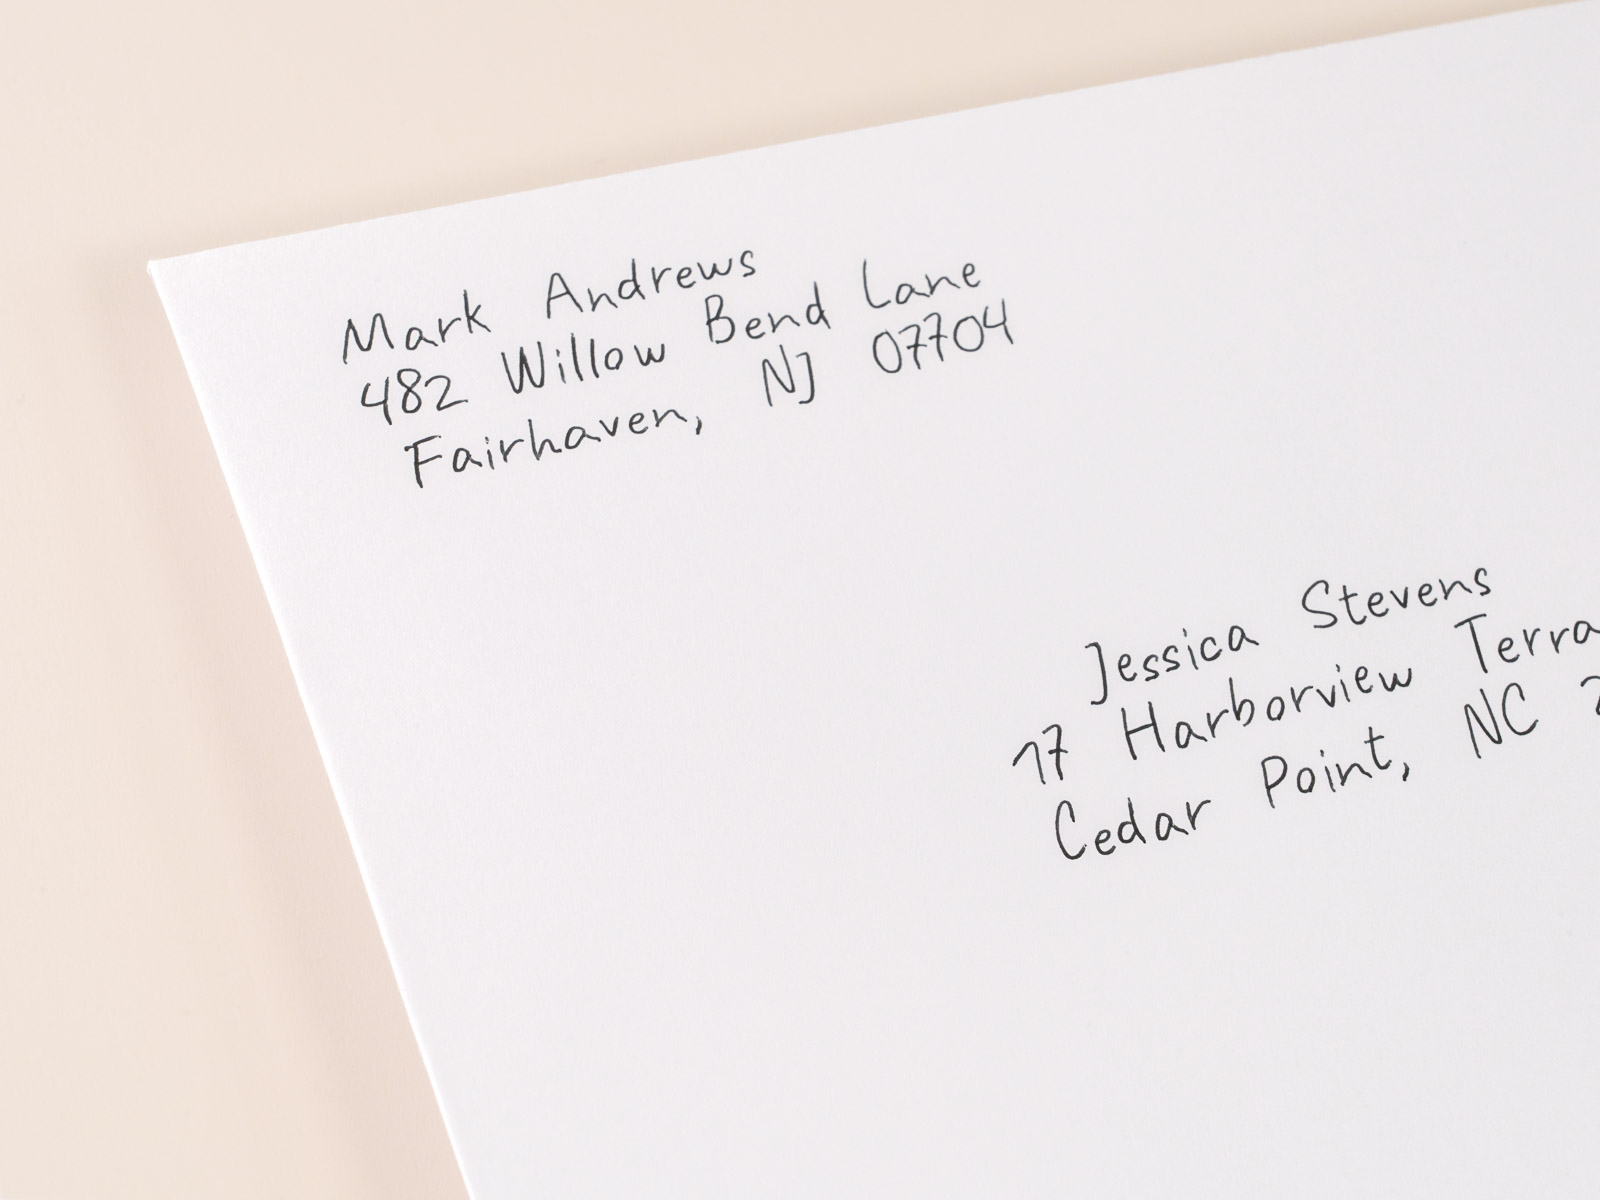 Mark Andrews
482 Willow Bend Lane
Fairhaven, NJ 07704
Jessica Stevens
17 Harborview
Cedar Point, NC